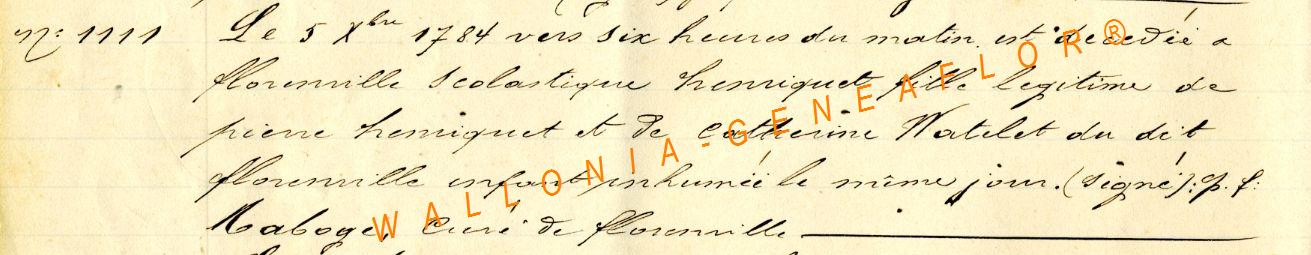 N° 1111 Le 5 Xbre 1784 vers six heures du matin est decedéé a
florenville Scolastique henriquet fille legitime de
pierre henriquet et de Catherine Watelet du dit
florenville enfant inhuméé le même jour. (signé): p. f.
Maboge, Curé de florenville
WALLONIA-GENEAFLOR®